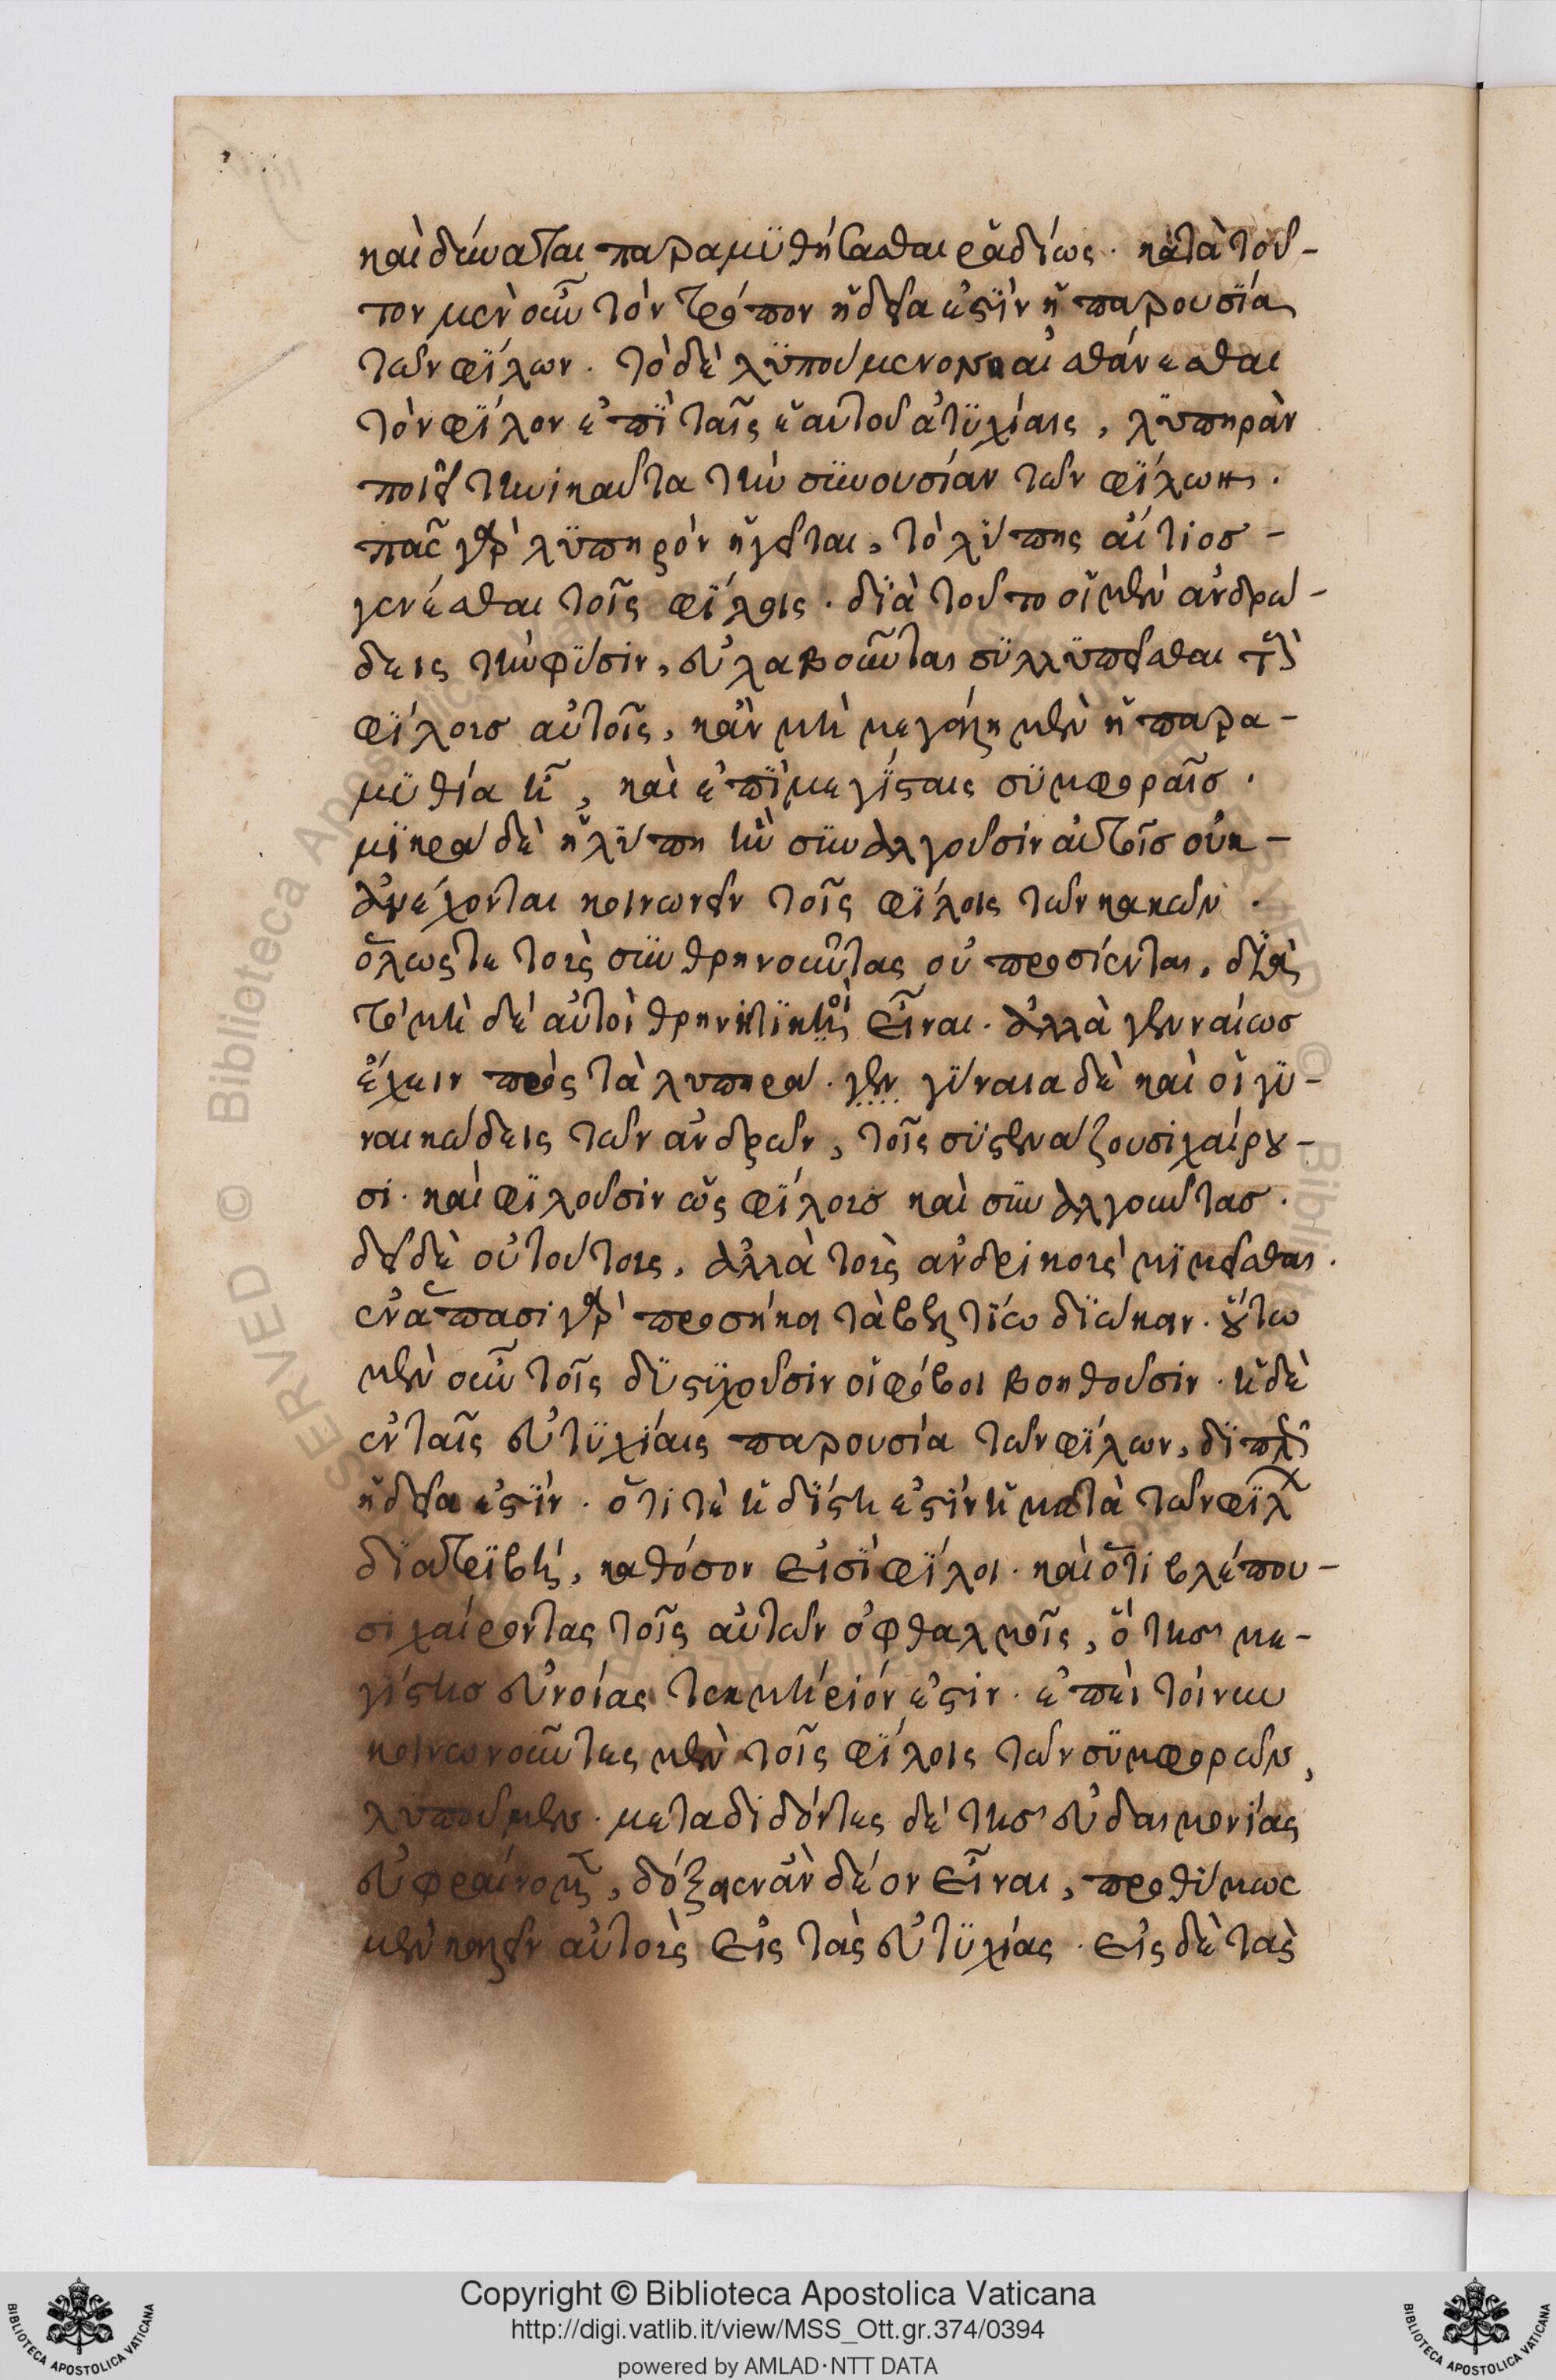 καὶ δύναται παραμϋθήσασθαι ῥαδίως · κατὰ τοῦ-
τον μὲν οὖν τὸν τρόπον ἡδεῖα ἐστὶν ἡ παρουσία
τῶν φίλων · τὸ δὲ λϋπούμενον αἰσθάνεσθαι
τὸν φίλον ἐπὶ ταῖς ἑαυτοῦ ἀτϋχίαις, λϋπηρὰν
ποιεῖ τηνικαῦτα τὴν συνουσίαν τῶν φίλων ·
πᾶς γὰρ λϋπηρὸν ἡγεῖται, τὸ λύπης αἴτιοσ -
γενέσθαι τοῖς φίλοις · διὰ τοῦτο οἱ μὲν ἀνδρώ-
δεις τὴν φύσιν, εὐλαβοῦνται συλλυπεῖσθαι τοὺς
φίλουσ αὐτοῖς, κἂν μὴ μεγάλη μὲν ἡ παρα-
μϋθία ἦ, καὶ ἐπὶ μεγίσταις συμφοραῖσ ·
μικρὰ δὲ ἡ λύπη ἣν συναλγοῦσιν αὐτοῖσ οὐκ -
ἀνέχονται κοινωνεῖν τοῖς φίλοις τῶν κακῶν ·
ὅλως τε τοὺς συνθρηνοῦντας οὐ προσίενται, διὰ
τὸ μὴ δὲ αὐτοὶ θρηνητικοὶ εἶναι · ἀλλὰ γενναίωσ
ἔχειν πρὸς τὰ λυπηρά · γεν γύναια δὲ καὶ οἱ γϋ-
ναικώδεις τῶν ἀνδρῶν, τοῖς συστενάζουσι χαίρου-
σι · καὶ φιλοῦσιν ὡς φίλουσ καὶ συναλγοῦντασ ·
δεῖ δὲ οὐ τούτους, ἀλλὰ τοὺς ἀνδρικοὺς μιμεῖσθαι ·
ἐν ἅπασι γὰρ προσήκει τὰ βελτίω διώκειν · οὕτω
μὲν οὖν τοῖς δυστυχοῦσιν οἱ φίλοι βοηθοῦσιν · ἡ δὲ
ἐν ταῖς εὐτϋχίαις παρουσία τῶν φίλων, διπλῆ
ἡδεῖα ἐστὶν · ὅτι τὲ ἡδίστη ἐστὶν ἡ μετὰ τῶν φίλων
διατριβὴ, καθόσον εἰσὶ φίλοι · καὶ ὅτι βλέπου-
σι χαίροντας τοῖς αὐτῶν ὀφθαλμοῖς, ὃ τῆσ με-
γίστησ εὐνοίας τεκμήριόν ἐστιν · ἐπεὶ τοίνυν
κοινωνοῦντες μὲν τοῖς φίλοις τῶν συμφορῶν,
λϋποῦμεν · μεταδιδόντες δὲ τῆσ εὐδαιμονίας
εὐφραίνομεν, δόξειεν ἂν δέον εἶναι, προθύμως
μὲν καλεῖν αὐτοὺς εἰς τὰς εὐτϋχίας · εἰς δὲ τὰς
Copyright © Biblioteca Apostolica Vaticana
http://digi.vatlib.it/view/MSS_Ott.gr.374/0394
powered by AMLAD·NTT DATA